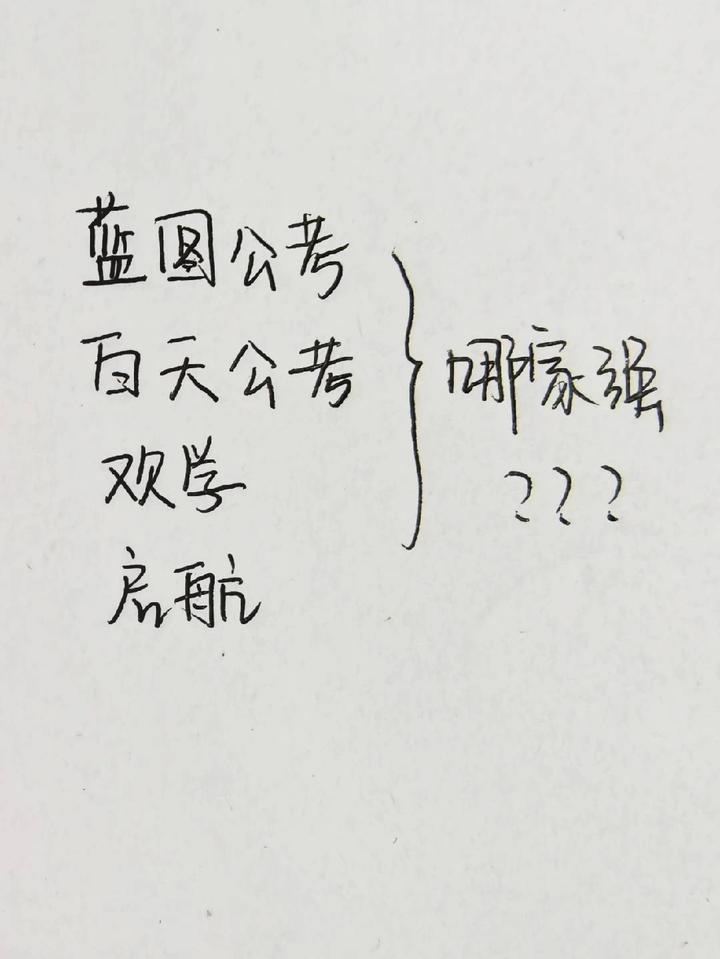 蓝图公考
百天公考
欢学
启航
哪家强
???